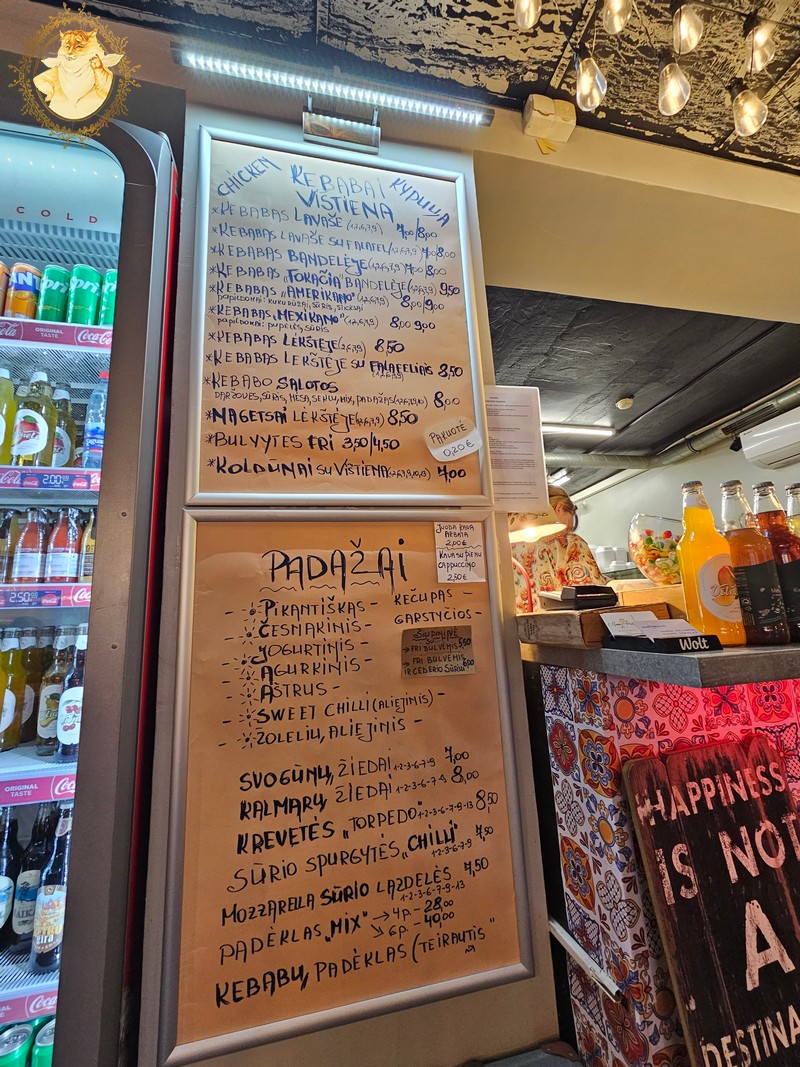 COLD
ORIGINAL TASTE
Coca-Cola
2.00
2.50
ORIGINAL TASTE
CHICKEN KEBABAI КУРИЦА
VIŠTIENA
*KEBABAS LAVAŠE (1,2,6,7,9) 7,00/8,00
*KEBABAS LAVAŠE SU FALAFEL (1,2,6,7,9) 7,00/8,00
*KEBABAS BANDELĖJE (1,2,6,7,9) 7,00 8,00
*KEBABAS "FOKAČIA" BANDELĖJE (1,2,6,7,9) 9,50
*KEBABAS "AMERIKANO" (1,2,6,7,9) 8,00/9,00
papildomai: kukurūzai, sūris,
*KEBABAS „MEXIKANO" (1,2,6,7,9) 8,00 9,00
papildomai: pupelės, sūris
*KEBABAS LĖKŠTĖJE (2,6,7,9) 8,50
*KEBABAS LĖKŠTĖJE SU FALAFELIAIS 8,50
*KEBABO SALOTOS
DARŽOVĖS, SŪRIS, MĖSA, SĖKLŲ MIX, PADAŽAS (1,2,6,7,9,10) 8,00
*NAGETSAI LĖKŠTĖJE (1,2,6,7,9) 8,50
*BULVYTĖS FRI 3,50/4,50
PAKUOTĖ
0,20 €
*KOLDŪNAI SU VIŠTIENA (1,2,6,7,9,10,13) 7,00
JUODA KAVA
ARBATA
2,00€
KAVA SU PIENU
CAPPUCCINO
2,50€
PADAŽAI
PIKANTIŠKAS -
ČESNAKINIS -
JOGURTINIS -
AGURKINIS -
AŠTRUS -
SWEET CHILLI (ALIEJINIS) -
ŽOLELIŲ, ALIEJINIS -
KEČUPAS -
GARSTYČIOS -
→FRI BULVĖMIS 5,50
→FRI BULVĖMIS
IR ČEDERIO SŪRIU 6,00
SVOGŪNŲ ŽIEDAI 1-2-3-6-7-9 7,00
KALMARŲ ŽIEDAI 1-2-3-6-7-9 8,00
KREVETĖS „TORPEDO" 1-2-3-6-7-9-13 8,50
SŪRIO SPURGYTĖS „CHILLI" 7,50
1-2-3-6-7-9
MOZZARELLA SŪRIO LAZDELĖS 7,50
1-2-3-6-7-9-13
PADĖKLAS „MIX" → 4p. - 28,00
↘ 6p. - 40,00
KEBABŲ PADĖKLAS (TEIRAUTIS"
Wolt
HAPPINESS
IS NOT
A
DESTINA